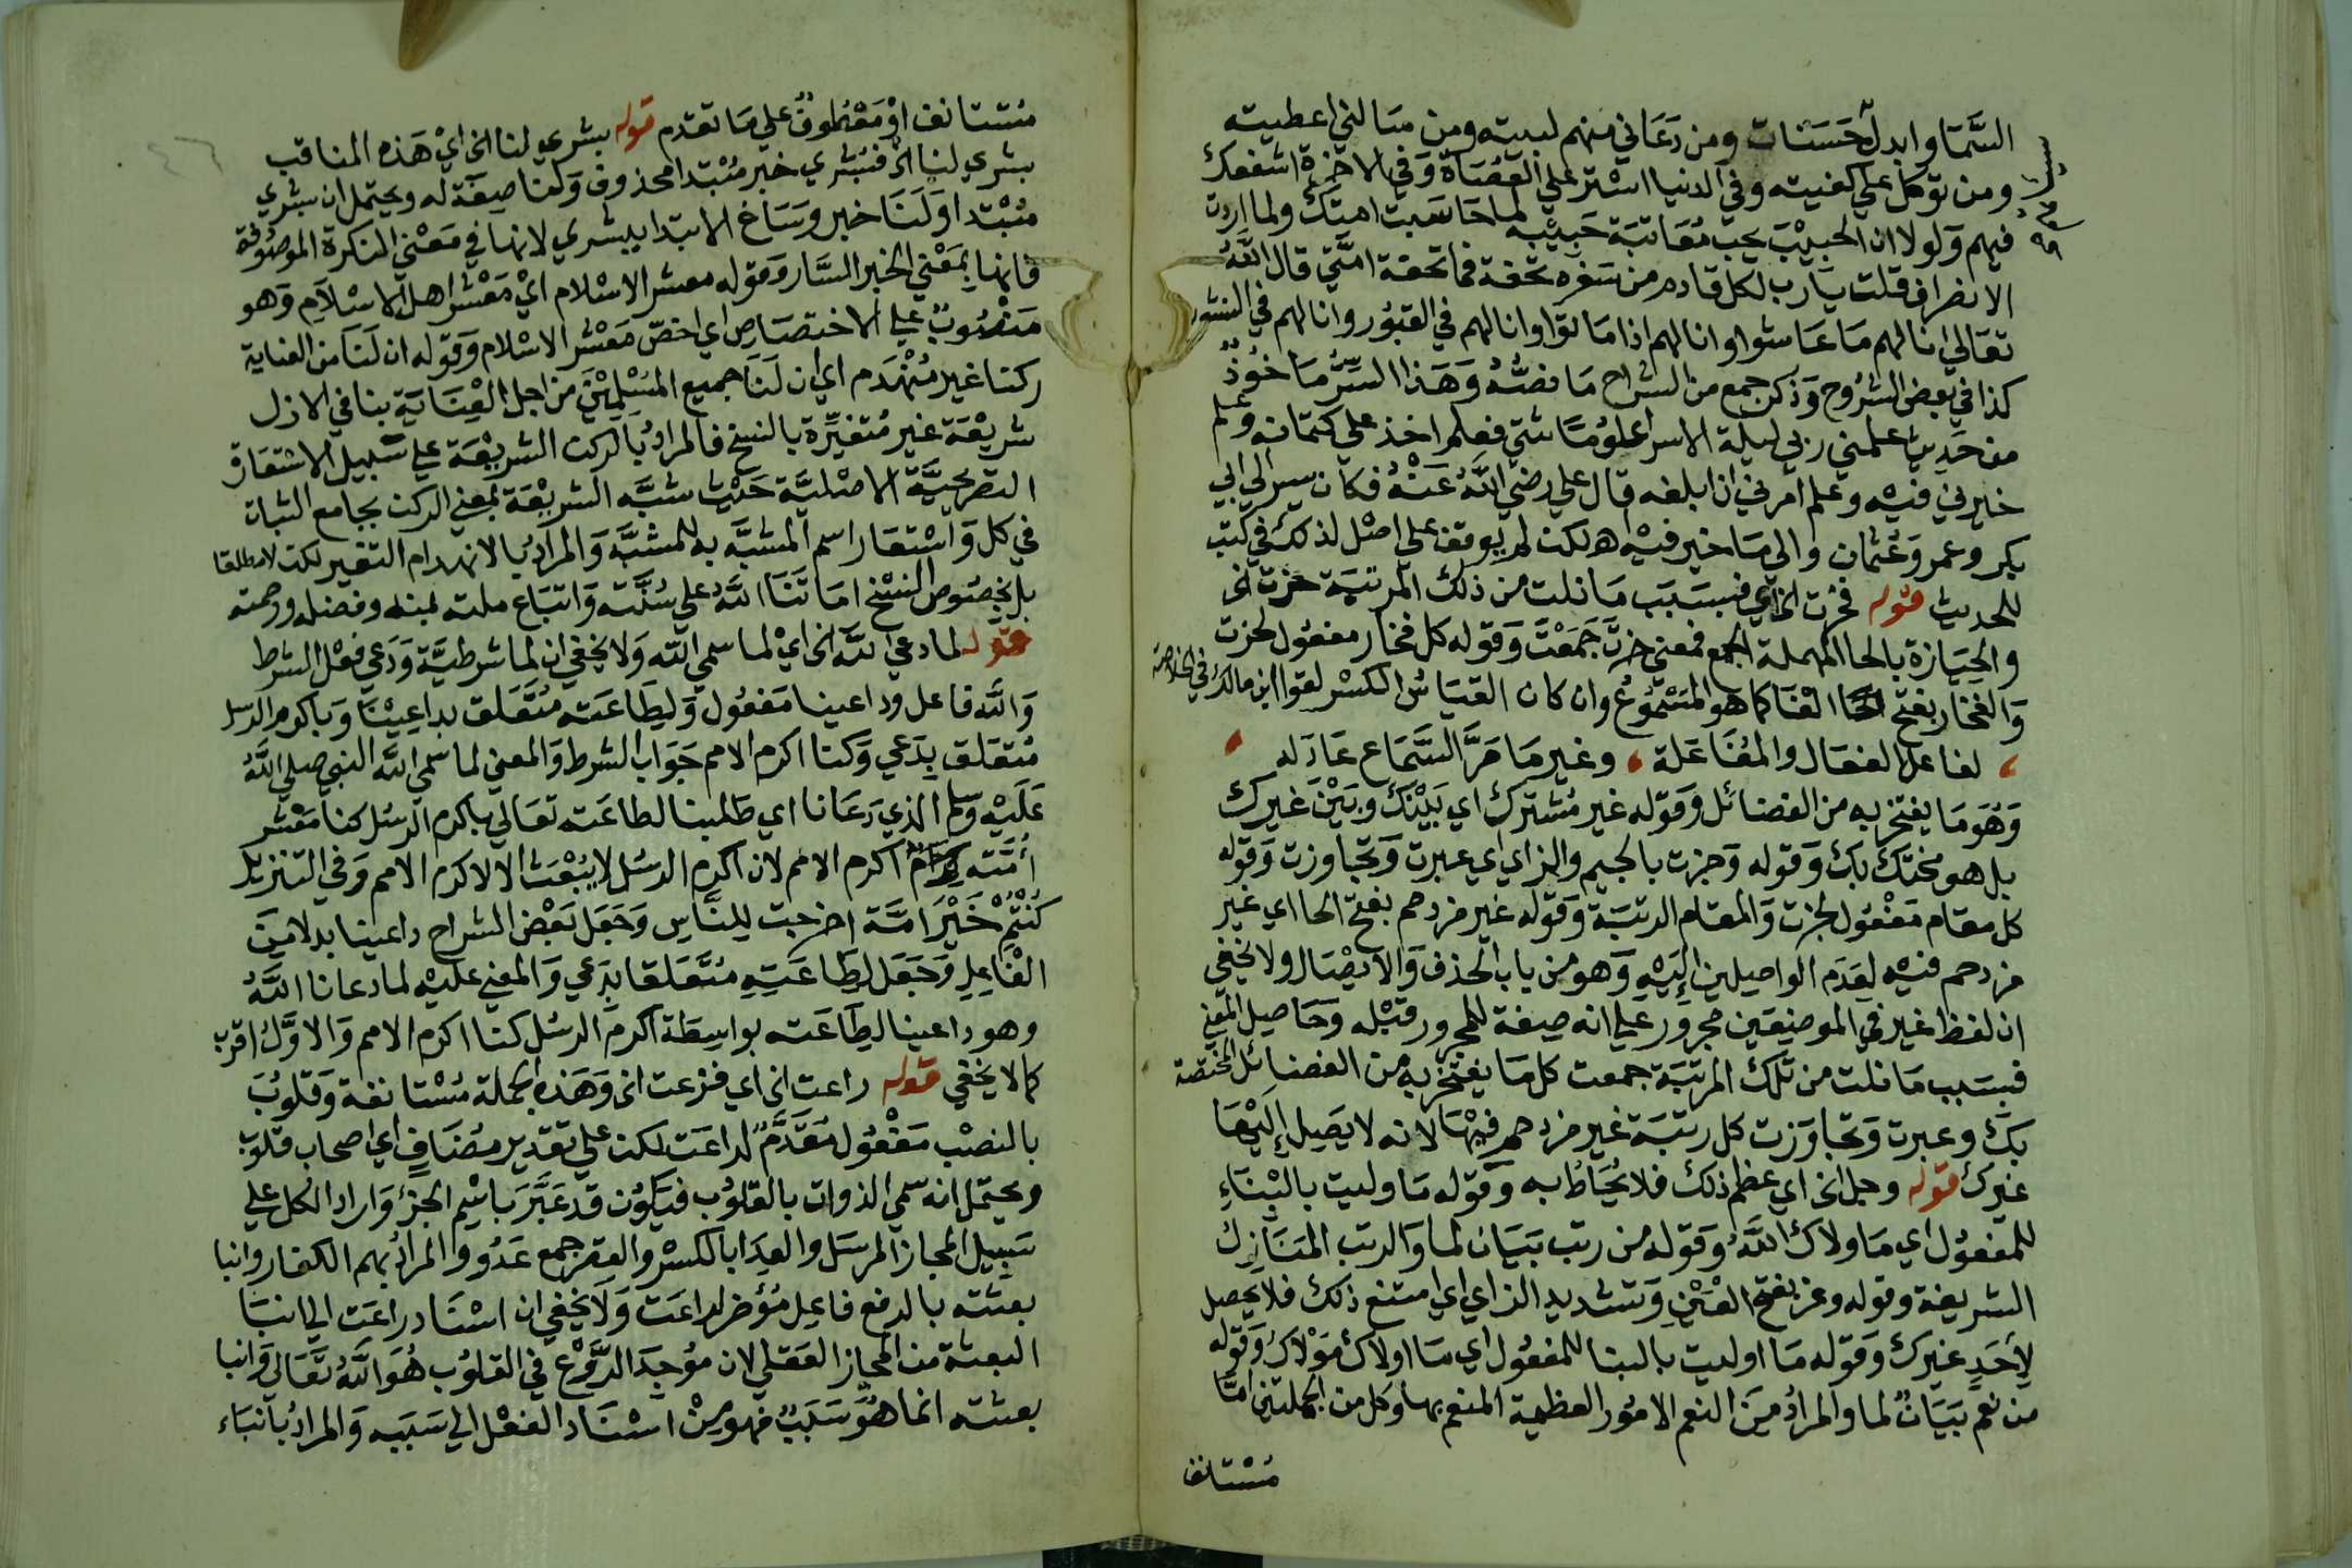 السَّمَا وابدله حَسَنات ومن دَعَاني منهم لبيته ومن سَالني اعطيته
ومن توكل علي كفيته وفي الدنيا استر علي العُصَاة وَفي الاخرة اشفعك
فيهم وَلولا ان الحبيْبَ يحب مُعَاتبَة حَبيْبه لما حَاسَبت امتك ولما اردت
الانصراف قلت يَارب لكل قادم من سَفره تحفة فما تحفة امتَّي قال اللهُ
تعَالى انا لهم مَا عَاشوا وانا لهم اذا مَاتوا وانا لهم في القبُور وانا لهم في النشور
كذا في بعض الشرُوح وَذكر جمع من الشراح مَا نصُّهُ وَهَذا السِّرُّ مَاخوُذٌ
من حَديث علمني ربي ليلة الاسرا علوُمًا شتي فعلم اخذ علي كتمانه وعلم
خيرني فيْه وعلم امرني ان ابلغه قال علي رضي اللهُ عَنْهُ فكان يسر الي ابي
بكر وعمر وَعُثمان والي مَا خير فيْه اهـ لكن لم يوقف علي اصْل لذلك في كتب
الحديث قوله فحُزت الخ اي فبسَبَب مَا نلت من ذلك المرتبَة حزت الخ
والحِيَازة بالحا المهملة الجمع فمعني حزتَ جَمَعْتَ وَقوله كل فخار مفعُول لحزت
وَالفَخَار بفتح الفا كما هو المَسْمُوعُ وان كان القيَاسُ الكسْر لقول ابن مالك في الخلاصة
، لفاعل الفعَال والمُفَاعَلة ، وغير مَا مَرَّ السَّمَاع عَادَله ،
وَهُوَ مَا يفتخر به من الفضائل وَقوله غير مُشترك اي بَيْنَكَ وبَيْنَ غيرك
بل هو مختك بك وَقوله وَجزت بالجيم والزاي اي عبرت وَتجاوزت وَقوله
كل مقام مَفْعُول لجزت وَالمقام الرتبَة وَقوله غير مزدحم بفتح الحا اي غير
مزدحم فيْه لعَدَم الواصلين اِليْهِ وَهو من باب الحذف وَالايصَال ولا يخفي
ان لفظ غير في الموضِعَين مجرُور علي انه صفة للمجرور قبْله وَحَاصِل المعْني
فبسَبب مَا نلت من تلك المرتبَة جمعت كل مَا يفتخر به من الفضائل المختصة
بك وعبرت وَتجاوَزت كل رتبَة غير مزدحم فيْهَا لانه لا يَصِل اِليْهَا
غيرك قوله وجل الخ اي عظم ذلك فلا يُحَاطُ به وَقوله مَا وليت بالبْنَاءِ
للمفعُول اي مَا ولاك اللهُ وَقوله من رتب بَيَان لما وَالرتب المَنَازل
الشريفة وقوله وعز بفتح العَيْنِ وَتشديد الزاي اي امتنع ذلك فلا يَحصل
لاَحَدٍ غيرك وَقوله مَا اوليت بالبنا للمفعُول اي مَا اولاك مَوْلاَكَ وَقوله
من نعم بَيَانٌ لما وَالمرادُ مِنَ النعم الامُور العظيمة المنعم بها وكل من الجملتين امَّا
مُسْتانف
مُسْتانف اوْ مَعْطوُفٌ علي مَا تقدم قوله بشري لنا الخ ايْ هَذه المناقب
بشري لنا اوْ فبُشري خبر مُبْتدا محذوف وَلنا صِفَة له ويحتمل ان بشري
مُبْتدا وَلَنَا خبر وسَاغ الابتدا ببشري لانها في مَعْني النكرة الموصُوفة
فانها بمَعْني الخبر السَّار وَقوله معشر الاسْلام ايْ مَعْشر اهل الاسْلاَمِ وَهو
مَنْصُوبٌ علي الاختصَاص اي اخصّ مَعْشر الاسْلام وَقوله ان لَنَا من العناية
ركنا غير مُنْهَدم اي ان لَنَا جميع المسْلِميْنَ من اجل العِنَايَة بنا في الازل
شريعَة غير مُتغيِّرة بالنسخ فالمرادُ بالركن الشريعَة علي سَبيل الاستعَارة
التصريحيَّة الاصْليَّة حَيْث شبَّه الشريعَة بمعني الركن بجامع الثبات
في كل وَاسْتعَار اسم المشبَّه به للمشبَّه وَالمرادُ بالانهدام التغير لكن لا مطلقا
بل بخصُوص النسْخ امَاتَنَا اللهُ علي سُنَّته وَاتبَاع ملته بمنه وفضله ورحمته
قوله لما دعي الله الخ ايْ لما سمي الله وَلا يخفي ان لما شرطيَّة وَدَعي فعْل الشرط
وَالله فاعل وداعينا مَفعُول وَلِطَاعَته مُتَعَلق بداعِيْنَا وَباكرم الرسل
مُتعَلق بدَعي وَكنا اكرم الامم جَوَاب الشرط وَالمعني لما سمي الله النبي صلي اللهُ
عَلَيْه وسَلم الذي دَعَانا اي طَلبنا لطاعَته تعَالي باكرم الرسُل كنا مَعْشر
اُمَّته اكرم الامَم لان اكرم الرسُل لا يُبْعَث الا لاكرم الامم وَفي التنزيل
كُنْتُمْ خَيْرَ امَّة اخرجت لِلنَّاسِ وَجَعَل بَعْض الشراح داعينا بدلا مِنَ
الفَاعِلِ وَجَعَل لِطَاعَتِهِ مُتَعَلقا بدَعي وَالمعني عليْه لما دعانا اللهُ
وهو داعينا لِطَاعَته بواسِطَة اكرم الرسُل كنا اكرم الامم وَالاوَّلُ اقرب
كما لا يخفي قوله راعت الخ اي فزعت الخ وَهَذه الجملة مُسْتانفة وَقلُوبَ
بالنصْب مَفْعُول مُقَدَّمٌ لراعَت لكن علي تقدير مضَافٍ اي اصحاب قلوب
ويحتمل انه سمي الذوات بالقلوُب فيَكُون قد عَبَّرَ باسْم الجزْء وَاراد الكل علي
سَبيل المجاز المرسَل والعِدَا بالكسْر والقصر جمع عَدُوّ وَالمرادُ بهم الكفار وانبا
بعثته بالرفع فاعِل مُؤخر لراعَت وَلا يخفي ان اسْنَاد راعَت الي انبَا
البعثة من المجاز العَقلي لان مُوجدَ الرَّوْع في القلوُب هُوَ اللهُ تعَالى وَانبا
بعثته انما هُوَ سَبَبٌ فهو مِنْ اسْنَاد الفعْل الي سَبَبه وَالمرادُ بانبَاء